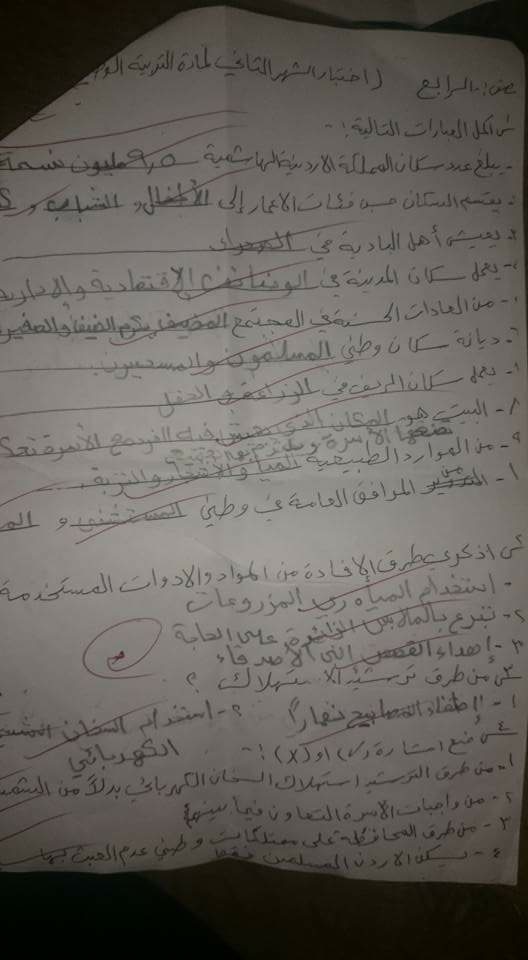 الرابع (اختبار الشهر الثاني لمادة التربية
س١ اكمل العبارات التالية :-
١- يبلغ عدد سكان المملكة الاردنية الهاشمية ٩,٥ مليون نسمة
٢- يقسم السكان حسب فئات الاعمار إلى الأطفال و الشباب و
٣- يعيش أهل البادية في الصحراء
٤- يعمل سكان المدينة في الوظائف الإقتصادية والادارية
٥- من العادات الحسنة في المجتمع المضيف يكرم الضيف و
٦- ديانة سكان وطني المسلمون والمسيحيون.
٧- يعمل سكان الريف في الزراعة و الحقل
٨- البيت هو المكان الذي يعيش فيه الأسرة
٩- من الموارد الطبيعية المياه و والتربة.
١٠- من المرافق العامة في وطني المستشفى و
س٢ اذكري طرق الإفادة من المواد والادوات المستخدمة
١- استخدام المياه ري المزروعات
٢- نتبرع بالملابس على الحاجة
٣- اهداء القصص الى الأصدقاء
س٣ من طرق ترشيد الاستهلاك ؟
١- اطفاء المصابيح نهاراً ٢- استخدام السخان
الكهربائي
س٤ ضع اشارة (✓) او (X) :-
١- من طرق الترشيد استهلاك السخان الكهربائي بدلاً من
٢- من واجبات الأسرة التعاون فيما بينهم
٣- من طرق المحافظة على ممتلكات وطني عدم العبث بها
٤- يسكن الاردن المسلمين فقط